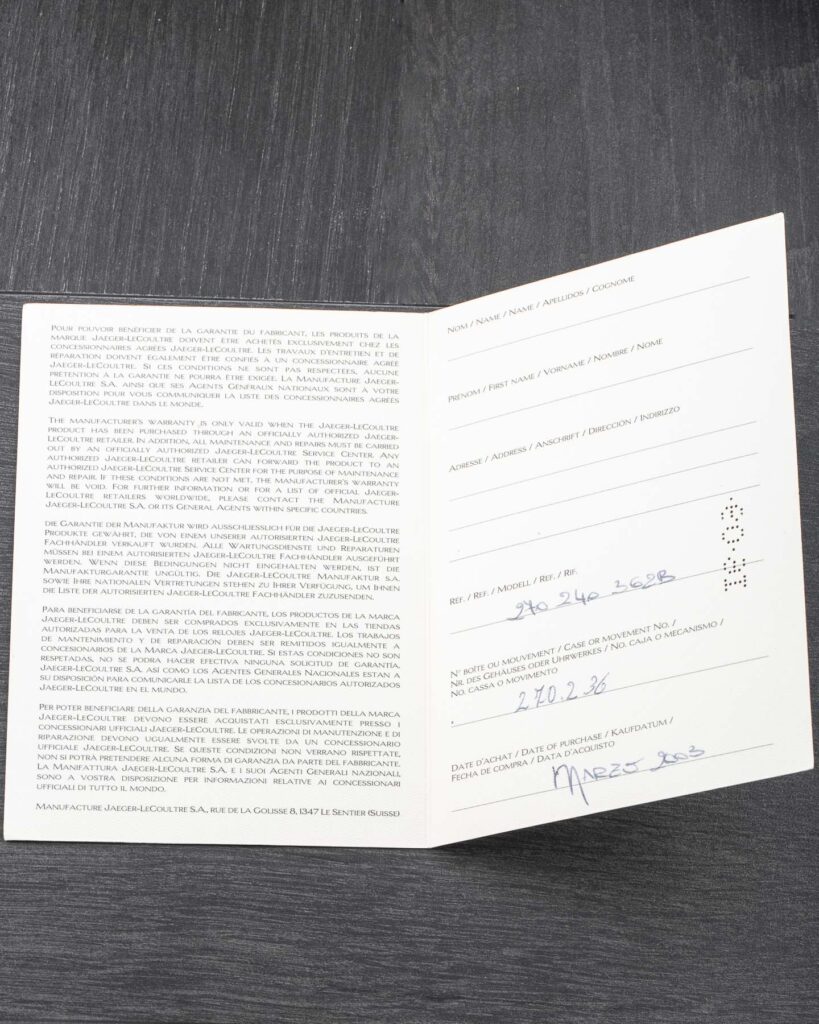 POUR POUVOIR BÉNÉFICIER DE LA GARANTIE DU FABRICANT, LES PRODUITS DE LA
MARQUE JAEGER-LECOULTRE DOIVENT ÊTRE ACHETÉS EXCLUSIVEMENT CHEZ LES
CONCESSIONNAIRES AGRÉÉS JAEGER-LECOULTRE. LES TRAVAUX D'ENTRETIEN ET DE
RÉPARATION DOIVENT ÉGALEMENT ÊTRE CONFIÉS À UN CONCESSIONNAIRE AGRÉÉ
JAEGER-LECOULTRE. SI CES CONDITIONS NE SONT PAS RESPECTÉES, AUCUNE
PRÉTENTION À LA GARANTIE NE POURRA ÊTRE EXIGÉE. LA MANUFACTURE JAEGER-
LECOULTRE S.A. AINSI QUE SES AGENTS GÉNÉRAUX NATIONAUX SONT À VOTRE
DISPOSITION POUR VOUS COMMUNIQUER LA LISTE DES CONCESSIONNAIRES AGRÉÉS
JAEGER-LECOULTRE DANS LE MONDE.
THE MANUFACTURER'S WARRANTY IS ONLY VALID WHEN THE JAEGER-LECOULTRE
PRODUCT HAS BEEN PURCHASED THROUGH AN OFFICIALLY AUTHORIZED JAEGER-
LECOULTRE RETAILER. IN ADDITION, ALL MAINTENANCE AND REPAIRS MUST BE CARRIED
OUT BY AN OFFICIALLY AUTHORIZED JAEGER-LECOULTRE SERVICE CENTER. ANY
AUTHORIZED JAEGER-LECOULTRE RETAILER CAN FORWARD THE PRODUCT TO AN
AUTHORIZED JAEGER-LECOULTRE SERVICE CENTER FOR THE PURPOSE OF MAINTENANCE
AND REPAIR. IF THESE CONDITIONS ARE NOT MET, THE MANUFACTURER'S WARRANTY
WILL BE VOID. FOR FURTHER INFORMATION OR FOR A LIST OF OFFICIAL JAEGER-
LECOULTRE RETAILERS WORLDWIDE, PLEASE CONTACT THE MANUFACTURE
JAEGER-LECOULTRE S.A. OR ITS GENERAL AGENTS WITHIN SPECIFIC COUNTRIES.
DIE GARANTIE DER MANUFAKTUR WIRD AUSSCHLIESSLICH FÜR DIE JAEGER-LECOULTRE
PRODUKTE GEWÄHRT, DIE VON EINEM UNSERER AUTORISIERTEN JAEGER-LECOULTRE
FACHHÄNDLER VERKAUFT WURDEN. ALLE WARTUNGSDIENSTE UND REPARATUREN
MÜSSEN BEI EINEM AUTORISIERTEN JAEGER-LECOULTRE FACHHÄNDLER AUSGEFÜHRT
WERDEN. WENN DIESE BEDINGUNGEN NICHT EINGEHALTEN WERDEN, IST DIE
MANUFAKTURGARANTIE UNGÜLTIG. DIE JAEGER-LECOULTRE MANUFAKTUR S.A.
SOWIE IHRE NATIONALEN VERTRETUNGEN STEHEN ZU IHRER VERFÜGUNG, UM IHNEN
DIE LISTE DER AUTORISIERTEN JAEGER-LECOULTRE FACHHÄNDLER ZUZUSENDEN.
PARA BENEFICIARSE DE LA GARANTÍA DEL FABRICANTE, LOS PRODUCTOS DE LA MARCA
JAEGER-LECOULTRE DEBEN SER COMPRADOS EXCLUSIVAMENTE EN LAS TIENDAS
AUTORIZADAS PARA LA VENTA DE LOS RELOJES JAEGER-LECOULTRE. LOS TRABAJOS
DE MANTENIMIENTO Y DE REPARACIÓN DEBEN SER REMITIDOS IGUALMENTE A
CONCESIONARIOS DE LA MARCA JAEGER-LECOULTRE. SI ESTAS CONDICIONES NO SON
RESPETADAS, NO SE PODRA HACER EFECTIVA NINGUNA SOLICITUD DE GARANTÍA.
JAEGER-LECOULTRE S.A. ASÍ COMO LOS AGENTES GENERALES NACIONALES ESTAN A
SU DISPOSICIÓN PARA COMUNICARLE LA LISTA DE LOS CONCESIONARIOS AUTORIZADOS
JAEGER-LECOULTRE EN EL MUNDO.
PER POTER BENEFICIARE DELLA GARANZIA DEL FABBRICANTE, I PRODOTTI DELLA MARCA
JAEGER-LECOULTRE DEVONO ESSERE ACQUISTATI ESCLUSIVAMENTE PRESSO I
CONCESSIONARI UFFICIALI JAEGER-LECOULTRE. LE OPERAZIONI DI MANUTENZIONE E DI
RIPARAZIONE DEVONO UGUALMENTE ESSERE SVOLTE DA UN CONCESSIONARIO
UFFICIALE JAEGER-LECOULTRE. SE QUESTE CONDIZIONI NON VERRANO RISPETTATE,
NON SI POTRÀ PRETENDERE ALCUNA FORMA DI GARANZIA DA PARTE DEL FABBRICANTE.
LA MANIFATTURA JAEGER-LECOULTRE S.A. E I SUOI AGENTI GENERALI NAZIONALI,
SONO A VOSTRA DISPOSIZIONE PER INFORMAZIONI RELATIVE AI CONCESSIONARI
UFFICIALI DI TUTTO IL MONDO.
MANUFACTURE JAEGER-LECOULTRE S.A., RUE DE LA GOLISSE 8, 1347 LE SENTIER (SUISSE)
NOM / NAME / NAME / APELLIDOS / COGNOME
PRÉNOM / FIRST NAME / VORNAME / NOMBRE / NOME
ADRESSE / ADDRESS / ANSCHRIFT / DIRECCIÓN / INDIRIZZO
REF. / REF. / MODELL / REF. / RIF.
270 240 362B
N° BOÎTE OU MOUVEMENT / CASE OR MOVEMENT NO. /
NR. DES GEHÄUSES ODER UHRWERKES / NO. CAJA O MECANISMO /
NO. CASSA O MOVIMENTO
270.2.36
DATE D'ACHAT / DATE OF PURCHASE / KAUFDATUM /
FECHA DE COMPRA / DATA D'ACQUISTO
MARZO 2003